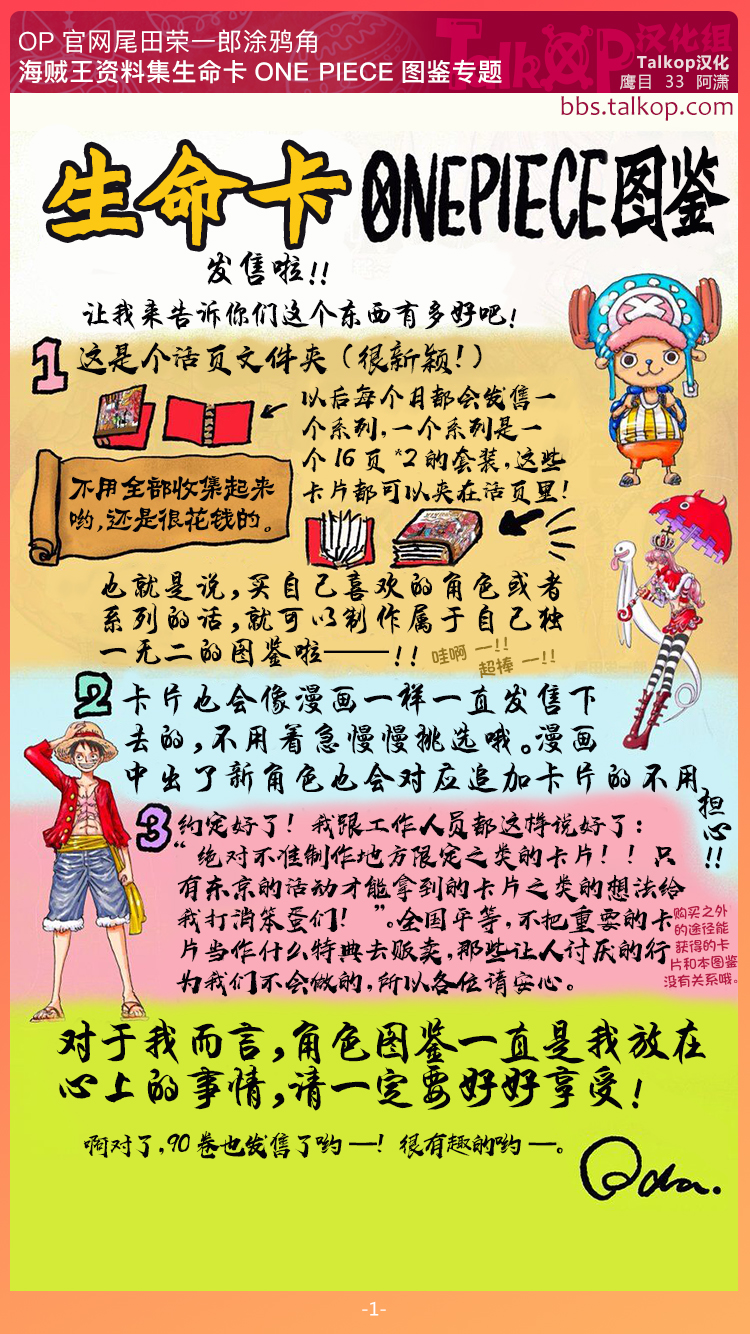 OP 官网尾田荣一郎涂鸦角
海贼王资料集生命卡 ONE PIECE 图鉴专题
TalkOP汉化组
Talkop汉化
鹰目 33 阿潇
bbs.talkop.com
生命卡 ONEPIECE图鉴
发售啦!!
让我来告诉你们这个东西有多好吧!
1 这是个活页文件夹(很新颖!)
以后每个月都会发售一
个系列,一个系列是一
个16页*2的套装,这些
卡片都可以夹在活页里!
不用全部收集起来
哟,还是很花钱的。
也就是说,买自己喜欢的角色或者
系列的话,就可以制作属于自己独
一无二的图鉴啦——!!
哇啊 一!!
超棒 一!!
2 卡片也会像漫画一样一直发售下
去的,不用着急慢慢挑选哦。漫画
中出了新角色也会对应追加卡片的不用
担心!!
3 约定好了! 我跟工作人员都这样说好了:
“绝对不准制作地方限定之类的卡片!! 只
有东京的活动才能拿到的卡片之类的想法给
我打消笨蛋们! ”。全国平等,不把重要的卡
片当作什么特典去贩卖,那些让人讨厌的行
为我们不会做的,所以各位请安心。
购买之外
的途径能
获得的卡
片和本图鉴
没有关系哦。
对于我而言,角色图鉴一直是我放在
心上的事情,请一定要好好享受!
啊对了,90卷也发售了哟一! 很有趣的哟一。
Oda.
-1-